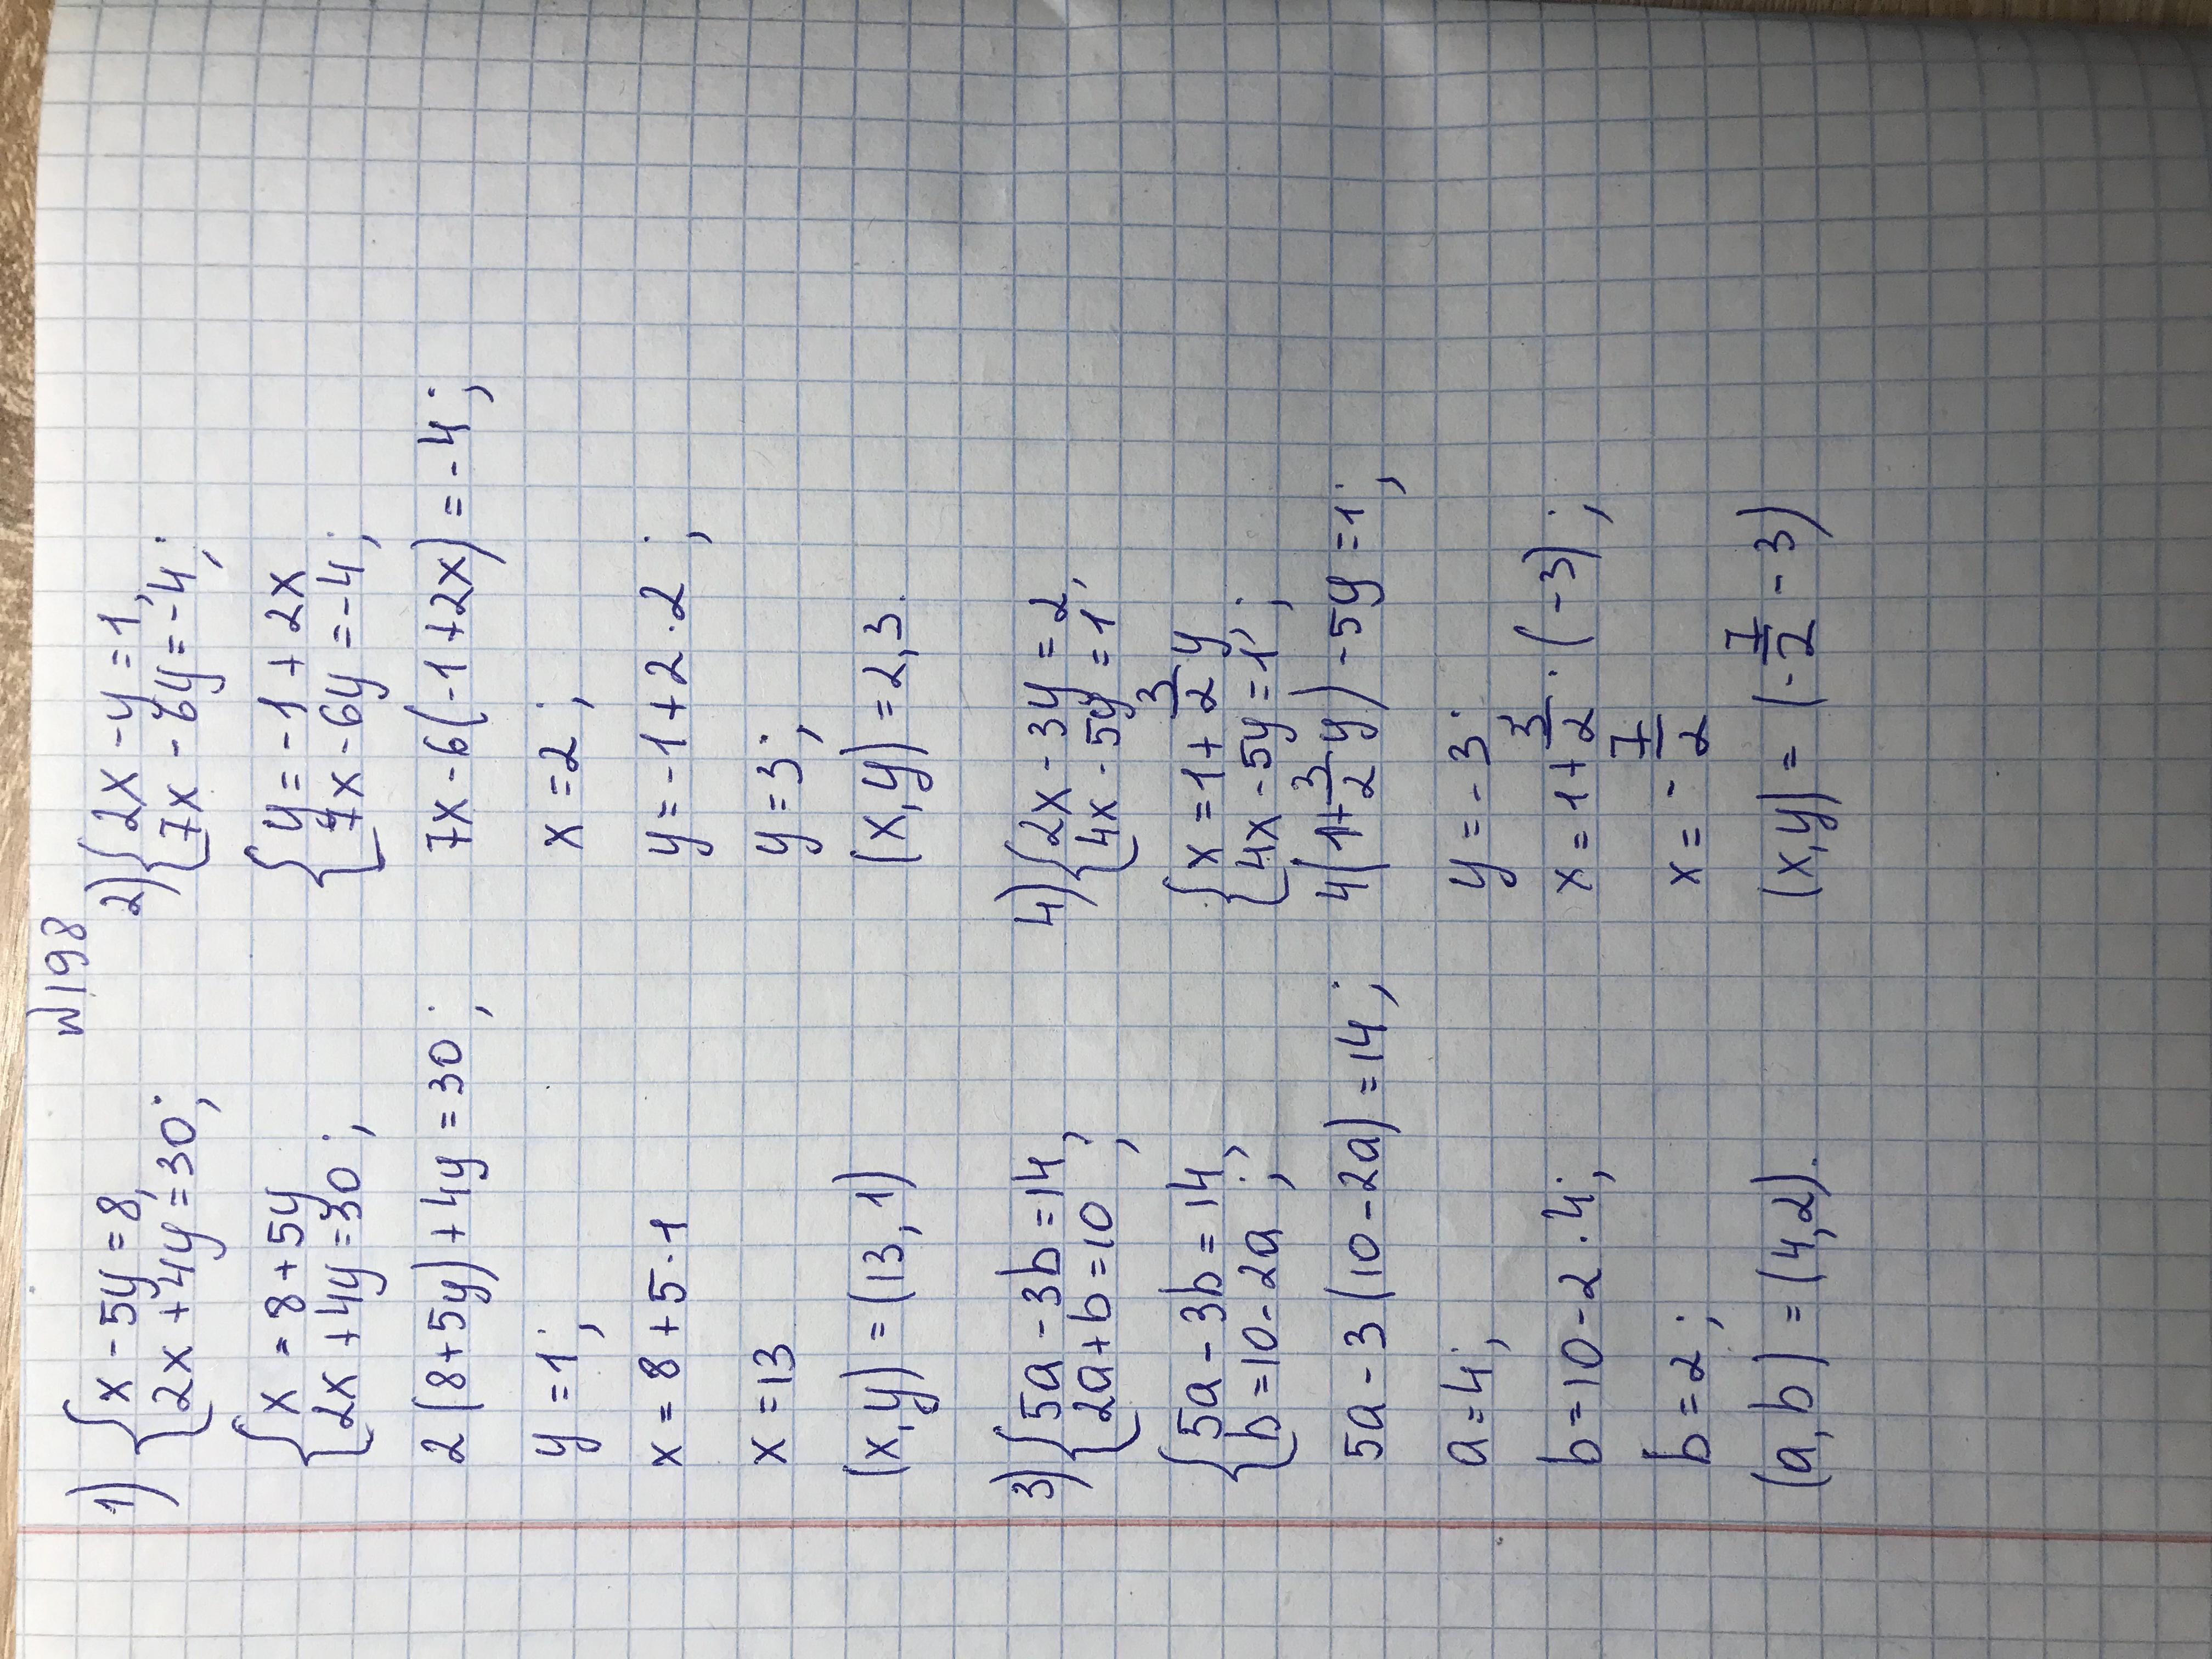 №198
1) { x - 5y = 8,
2x + 4y = 30;
{ x = 8 + 5y
2x + 4y = 30;
2(8+5y)+4y=30;
y = 1;
x = 8 + 5 · 1
x = 13
(x,y) = (13, 1)
2) { 2x - y = 1,
7x - 6y = -4;
{ y = -1 + 2x
7x - 6y = -4;
7x - 6(-1+2x) = -4;
x = 2;
y = -1 + 2 · 2;
y = 3;
(x,y) = 2,3.
3) { 5a - 3b = 14,
2a + b = 10;
{ 5a - 3b = 14,
b = 10 - 2a;
5a - 3(10-2a) = 14;
a = 4;
b = 10 - 2 · 4;
b = 2;
(a, b) = (4,2).
4) { 2x - 3y = 2,
4x - 5y = 1,
{ x = 1 + 3/2 y
4x - 5y = 1;
4(1+3/2y) - 5y = 1;
y = -3;
x = 1 + 3/2 · (-3);
x = - 7/2
(x,y) = (- 7/2 - 3)